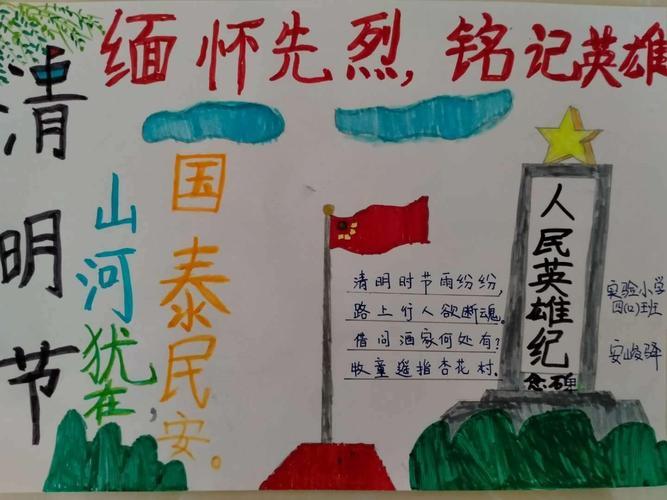 缅怀先烈,铭记英雄
清明节
山河犹在,
国泰民安。
清明时节雨纷纷,
路上行人欲断魂。
借问酒家何处有?
牧童遥指杏花村。
人民英雄纪念碑
实验小学
四(2)班
安峻驿